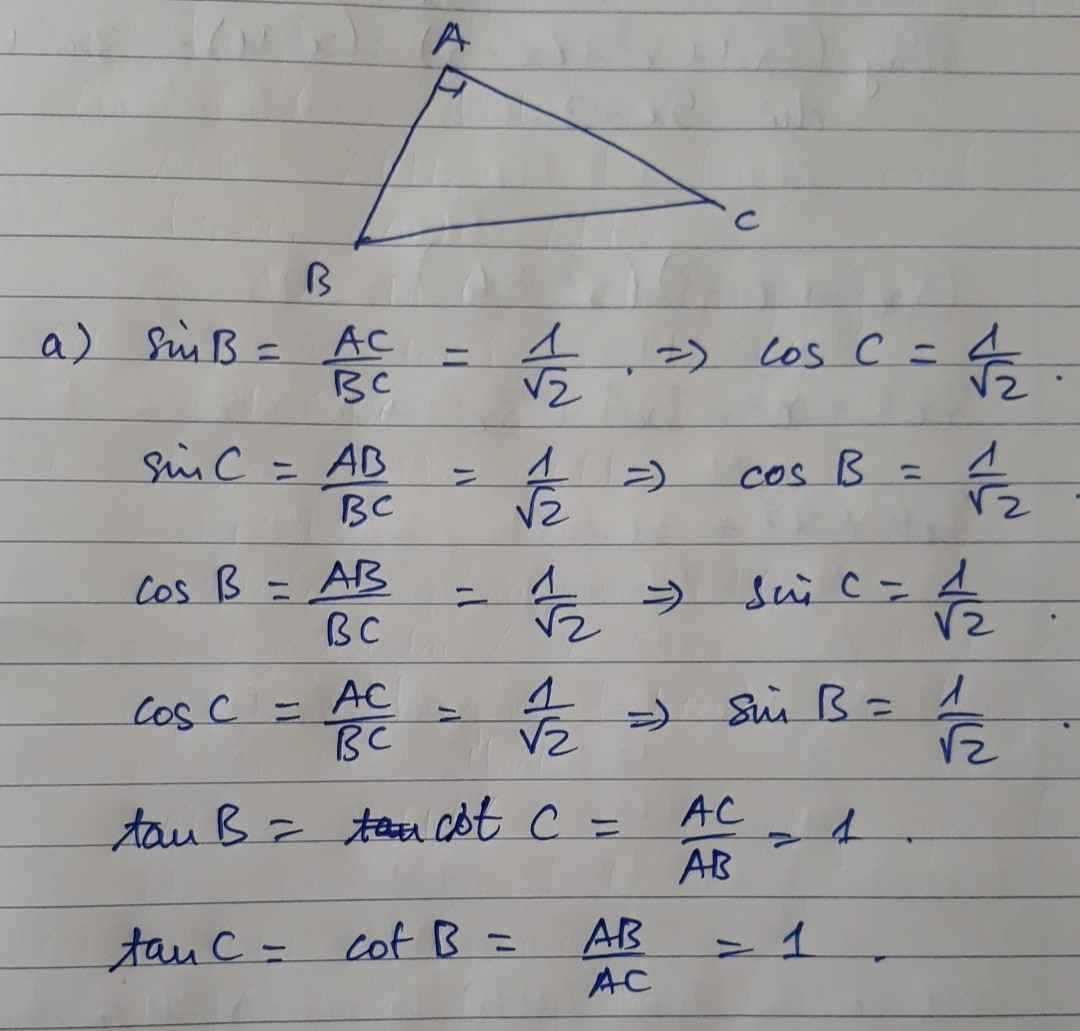 A
C
B
a) sin B = AC/BC = 1/√2 . => cos C = 1/√2 .
sin C = AB/BC = 1/√2 => cos B = 1/√2
cos B = AB/BC = 1/√2 => sin C = 1/√2 .
cos C = AC/BC = 1/√2 => sin B = 1/√2 .
tan B = cot C = AC/AB = 1 .
tan C = cot B = AB/AC = 1 .